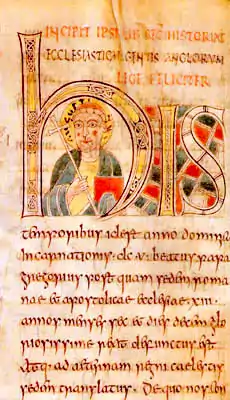 INCIPIT IPSIUS HISTORIAE
ECCLESIASTICAE GENTIS ANGLORUM
LEGE FELICITER
hIS
temporibus id est anno dominicae
Incarnationis dc u beatus papa
gregorius post quam sedem roma
nae et apostolicae ecclesiae xiii
annos menses sex et dies decem glo
riosissime rexit defunctus est
Atq: ad aeternam regni caelestis
sedem translatus. De quo nos con